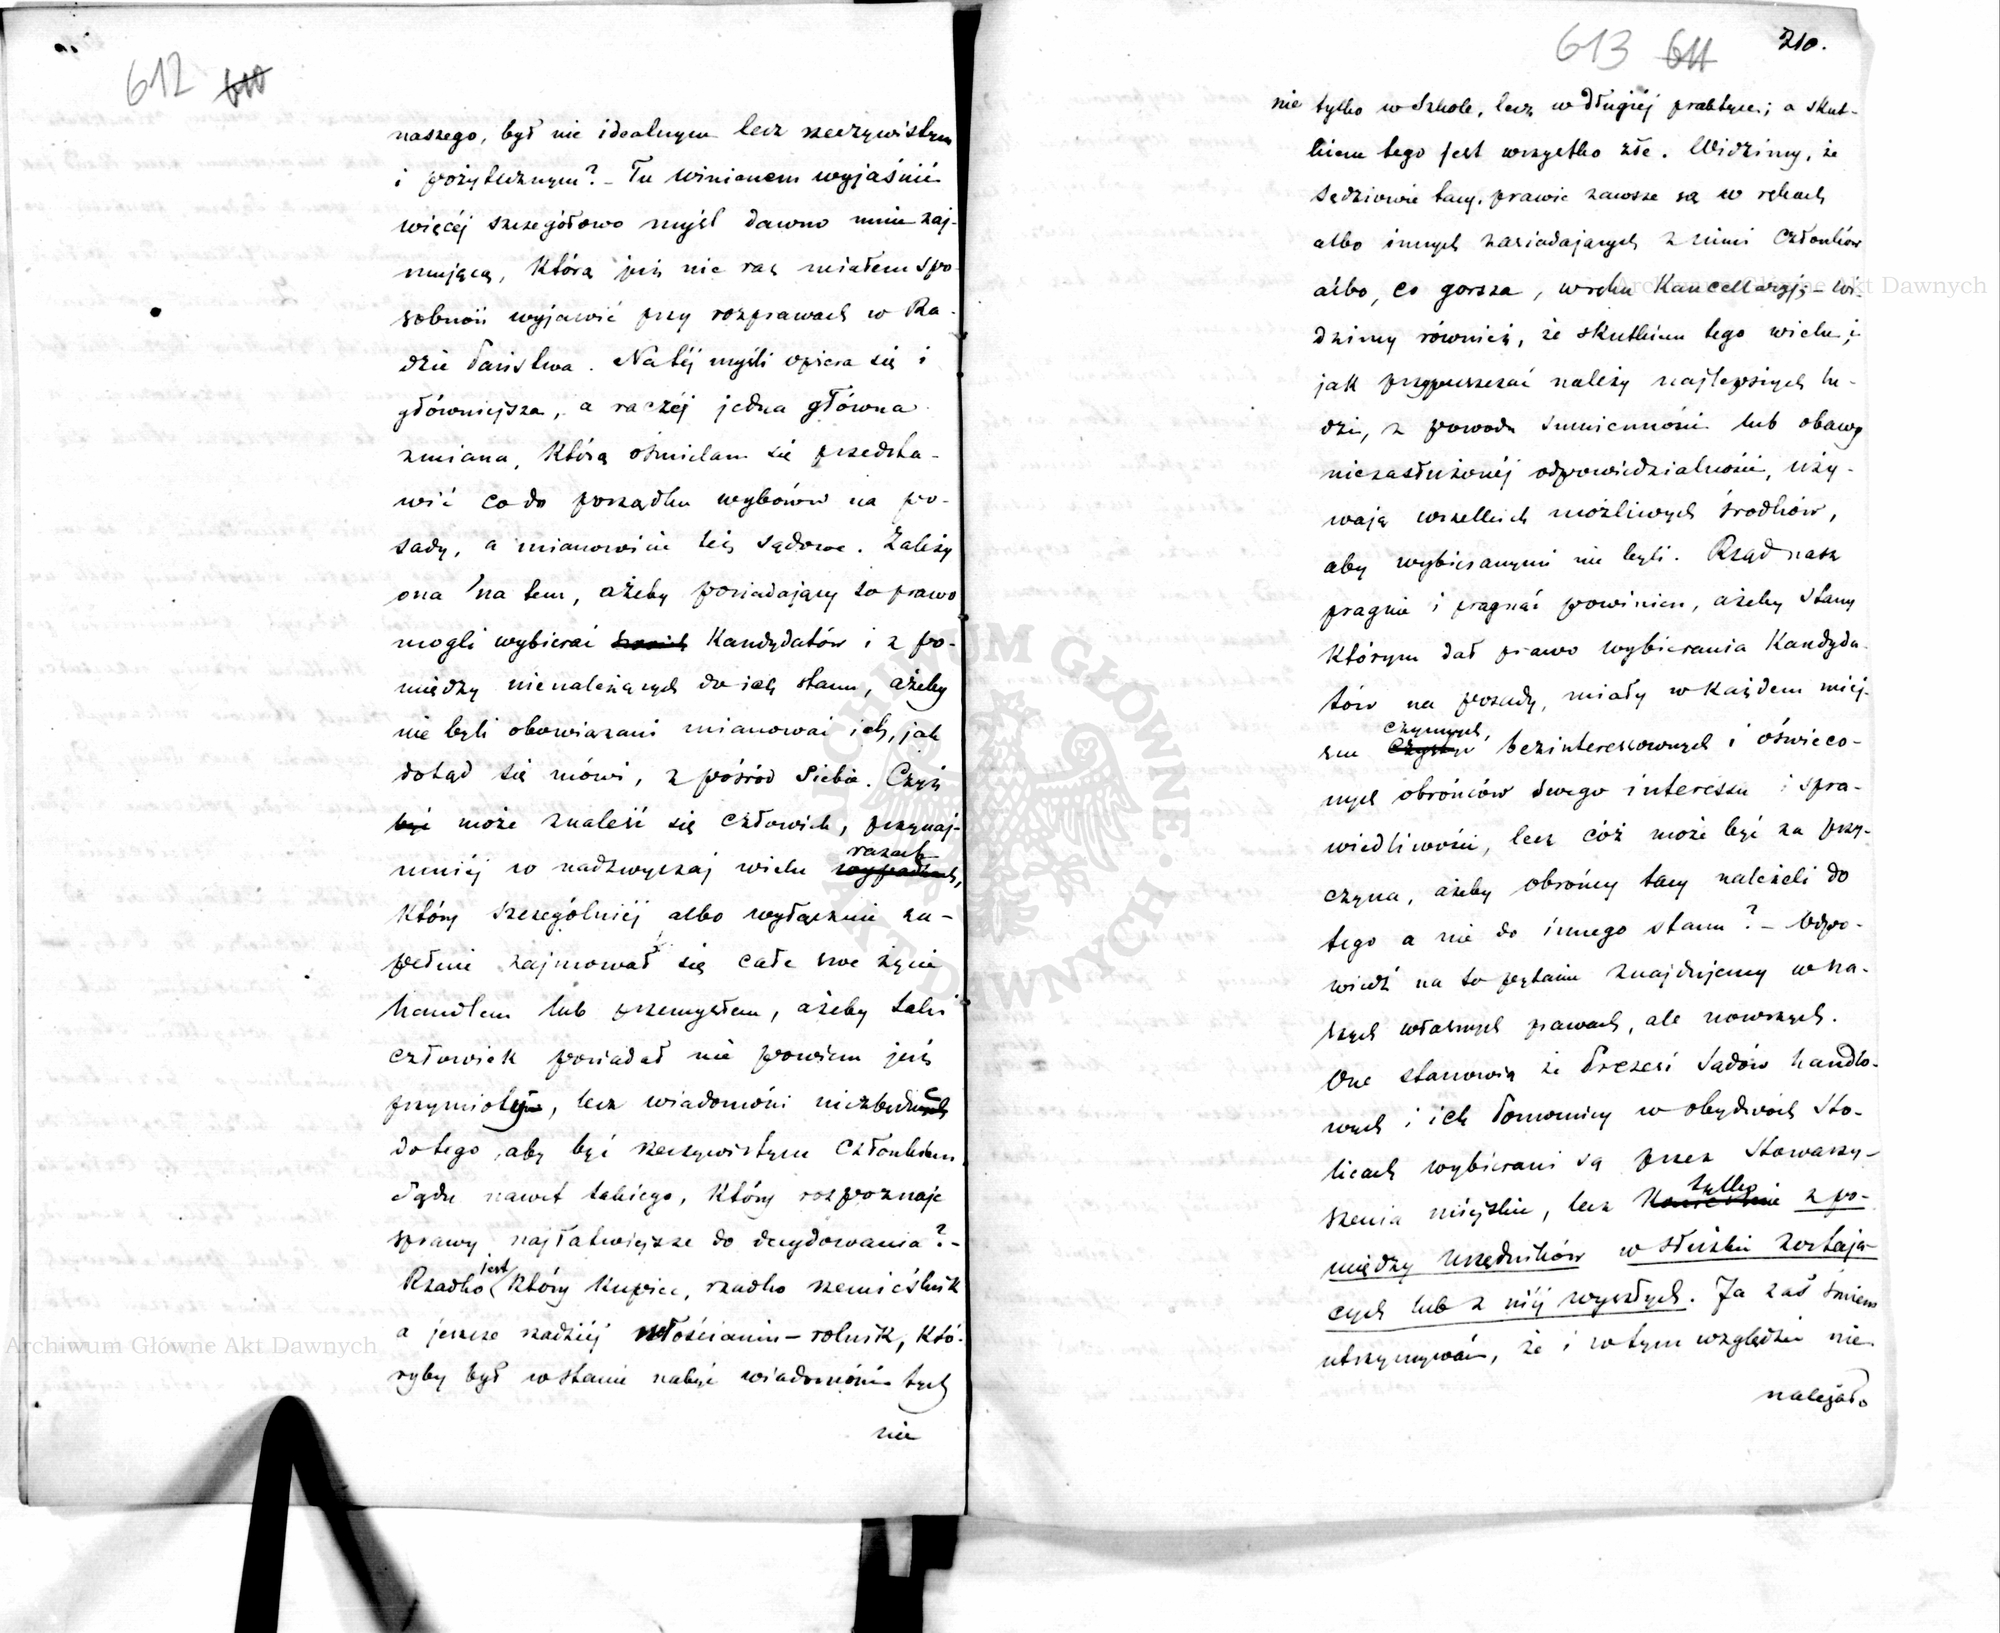 612 610
naszego, był nie idealnym lecz rzeczywistym
i pożytecznym? – Tu winienem wyjaśnić
więcéj szczegółowo myśl dawno mnie zaj-
mującą, którą już nie raz miałem spo-
sobność wyjawić przy rozprawach w Ra-
dzie Państwa. Na téj myśli opiera się i
główniejsza, a raczéj jedna główna
zmiana, którą ośmielam się przedsta-
wić co do porządku wyborów na po-
sady, a mianowicie też sądowe. Zależy
ona na tem, ażeby posiadający to prawo
mogli wybierać swoich Kandydatów i z po-
między nienależących do ich stanu, ażeby
nie byli obowiązani mianować ich, jak
dotąd się mówi, z pośród siebie. Czyż
być może znaleść się człowiek, przynaj-
razach
mniéj w nadzwyczaj wielu wypadkach,
który szczególniéj albo wyłącznie zu-
pełnie zajmował się całe swe życie
handlem lub przemysłem, ażeby taki
człowiek posiadał nie powiem już
przymioty, lecz wiadomości niezbędne
do tego, aby być rzeczywistym Członkiem
Sądu nawet takiego, który rozpoznaje
sprawy najłatwiejsze do decydowania? –
jest
Rzadko który kupiec, rzadko rzemieślnik
a jeszcze rzadziéj włościanin – rolnik, któ-
ryby był w stanie nabyć wiadomości tych
nie
613 611 210.
nie tylko w szkole, lecz w długiéj praktyce; a skut-
kiem tego jest wszystko złe. Widzimy, że
sędziowie tacy, prawie zawsze są w rękach
albo innych zasiadających z nimi Członków
albo, co gorsza, w ręku Kancellaryj; – wi-
dzimy również, że skutkiem tego wielu, i
jak przypuszczać należy najlepszych lu-
dzi, z powodu sumienności lub obawy
niezasłużonéj odpowiedzialności, uży-
wają wszelkich możliwych środków,
aby wybieranymi nie byli. Rząd nasz
pragnie i pragnąć powinien, ażeby stany
którym dał prawo wybierania Kandyda-
tów na posady, miały w każdem miej-
czynnych,
scu bezinteressownych i oświeco-
nych obrońców swego interessu i spra-
wiedliwości, lecz cóż może być za przy-
czyna, ażeby obrońcy tacy należeli do
tego a nie do innego stanu? – Odpo-
wiedź na to pytanie znajdujemy w na-
szych własnych prawach, ale nowszych.
One stanowią że Prezesi Sądów handlo-
wych i ich Pomocnicy w obydwóch sto-
licach wybierani są przez Stowarzy-
tylko
szenia miejskie, lecz koniecznie z po-
między urzędników w służbie zostają-
cych lub z niéj wyszłych. Ja zaś śmiem
utrzymywać, że i w tym względzie nie
należało
Archiwum Główne Akt Dawnych
Archiwum Główne Akt Dawnych
ARCHIWUM GŁÓWNE AKT DAWNYCH